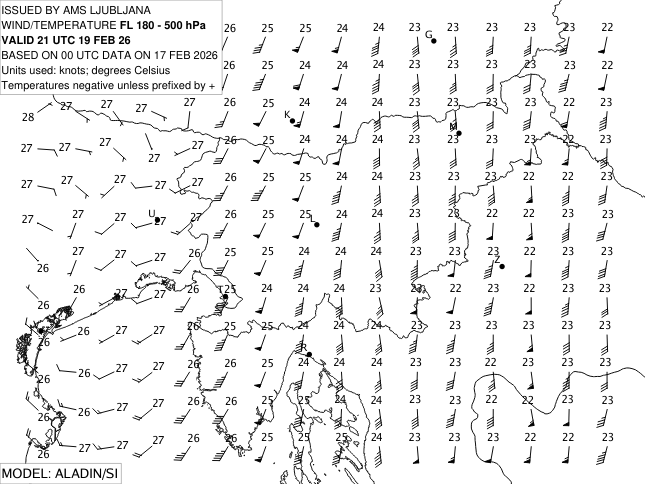 ISSUED BY AMS LJUBLJANA
WIND/TEMPERATURE FL 180 - 500 hPa
VALID 21 UTC 19 FEB 26
BASED ON 00 UTC DATA ON 17 FEB 2026
Units used: knots; degrees Celsius
Temperatures negative unless prefixed by +
26 25 25 24 24 23 23 23 23 23 22
G
26 25 24 24 24 23 23 23 23 23 22
28 27 27 27 27 26 25 24 24 24 23 23 23 23 22 23
K M
27 27 27 27 27 26 25 24 24 24 23 23 23 23 22 23
27 27 27 27 27 26 25 25 24 24 23 23 23 22 22 23
27 27 27 U 27 27 26 25 25 L 24 24 23 23 22 22 22 23
26 27 27 27 26 25 25 24 24 24 23 23 23 22 23 23
Z
26 26 27 27 26 25 24 24 24 23 23 22 23 22 23 23
26 26 27 27 26 25 25 24 24 24 23 23 23 23 23 23
R
26 26 27 27 26 26 25 24 24 24 23 23 22 23 23 22
26 26 27 27 26 26 25 25 24 24 23 23 22 22 23 23
26 27 27 27 26 26 25 25 25 24 23 23 23 22 22 23
MODEL: ALADIN/SI